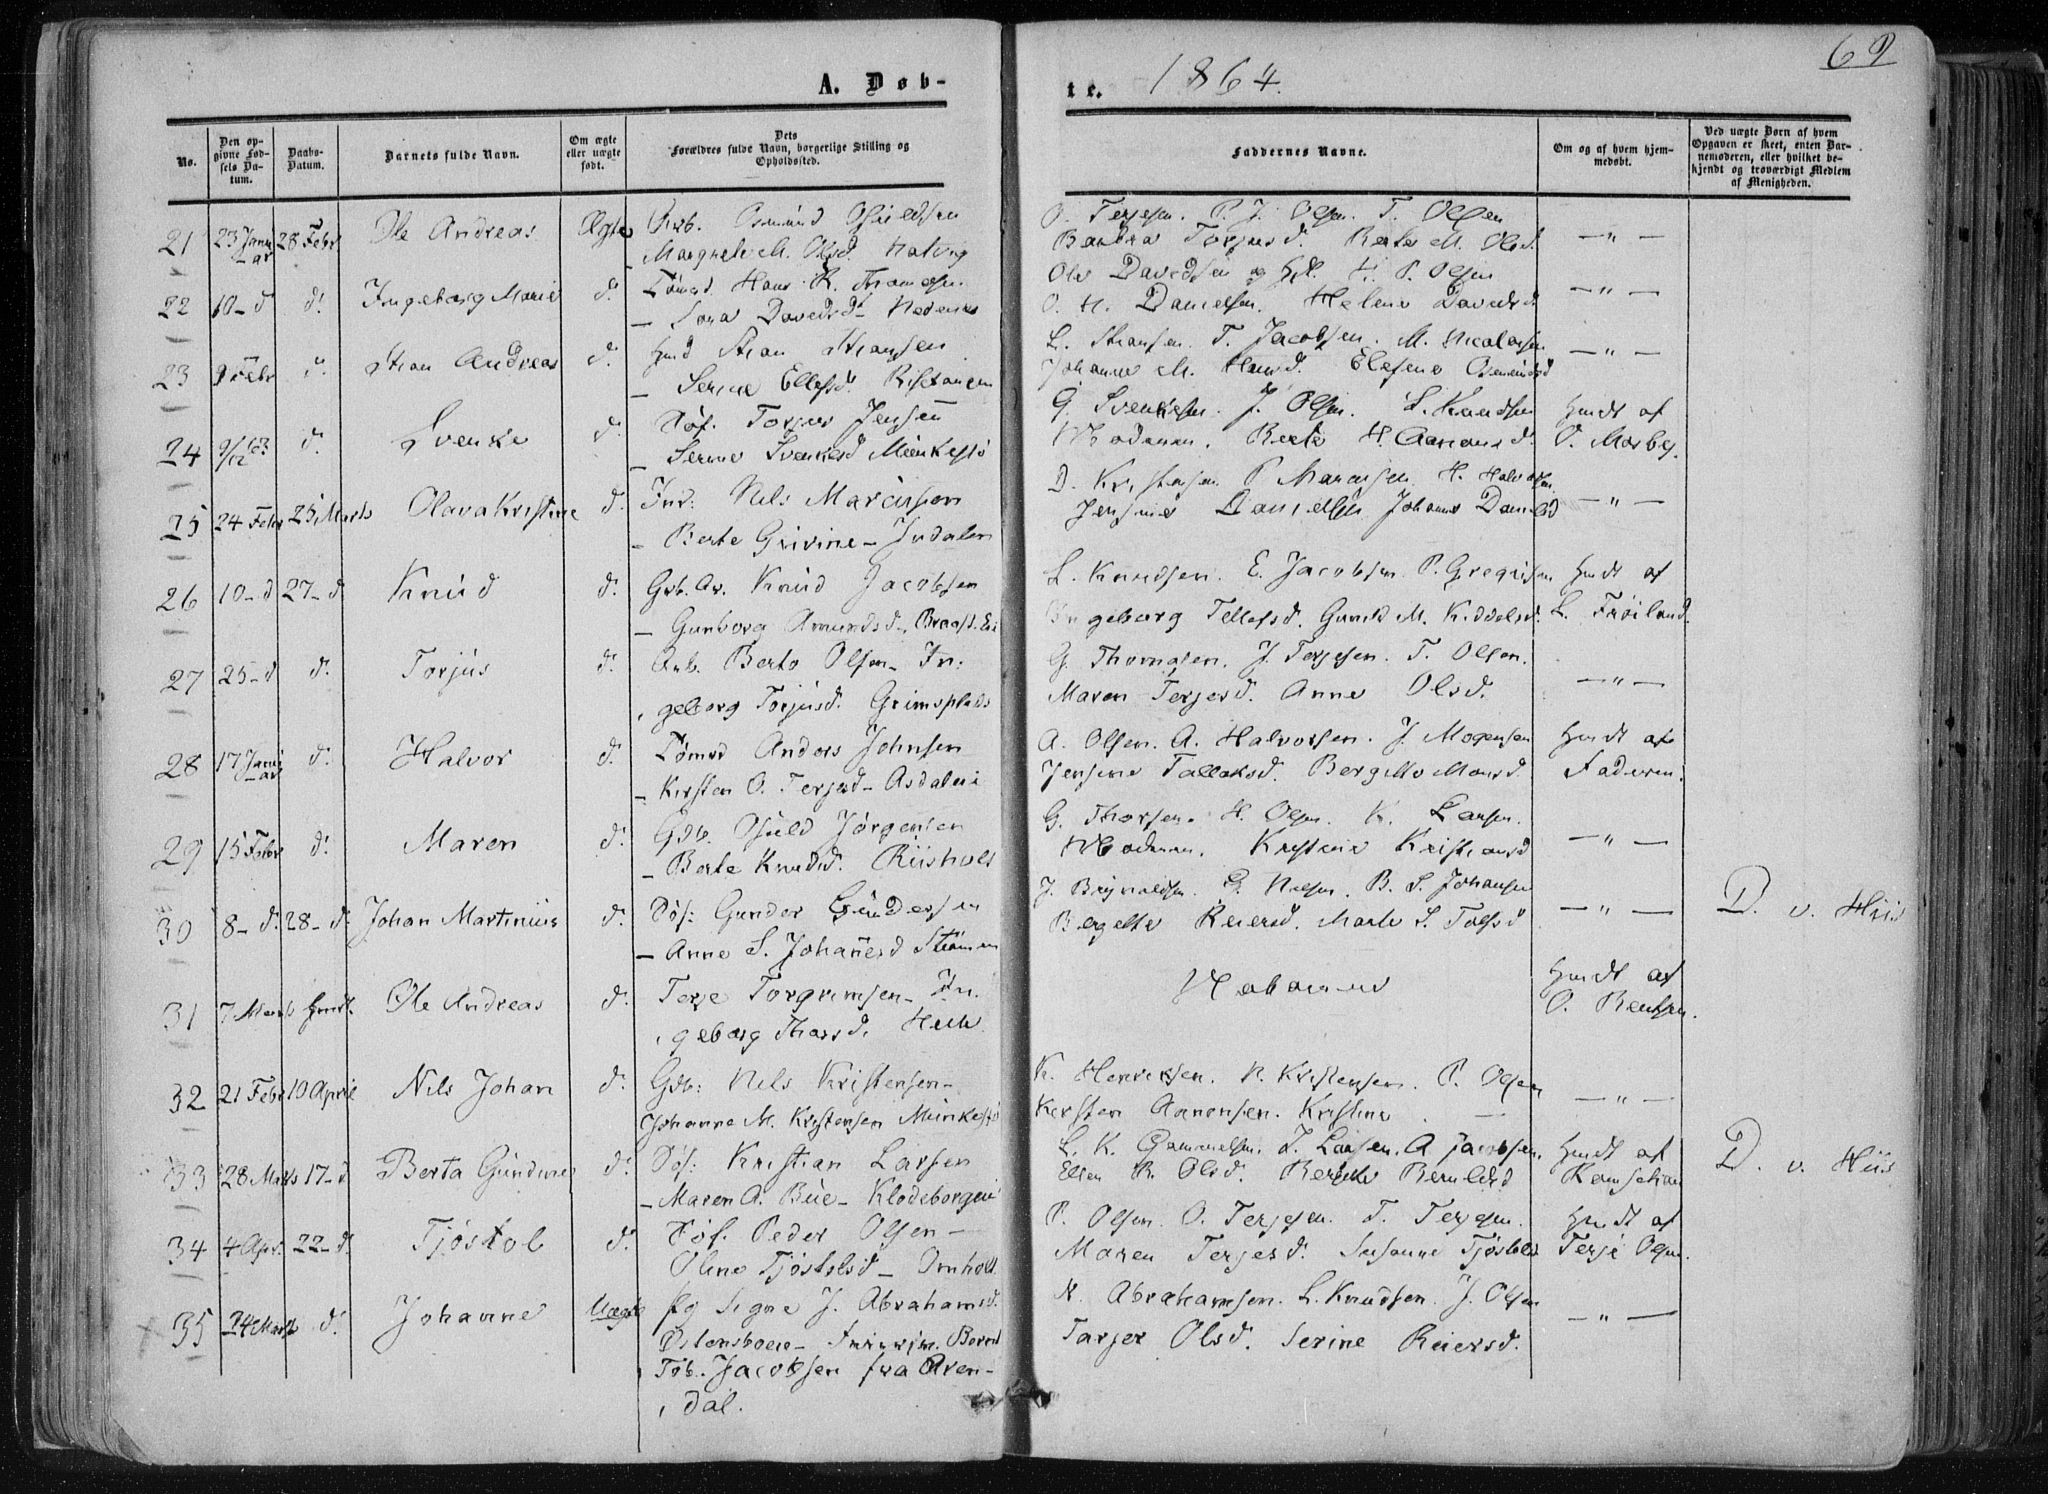 A. Døb-
te.
1864.
69
No.
Den op-
givne Fød-
sels Da-
tum.
Daabs-
Datum.
Barnets fulde Navn.
Om ægte
eller uægte
født.
Dets
Forældres fulde Navn, borgerlige Stilling og
Opholdssted.
Faddernes Navne.
Om og af hvem hjem-
medøbt.
Ved uægte Børn af hvem
Opgaven er skeet, enten Bar-
nemoderen, eller hvilket be-
kjendt og troværdigt Medlem
af Menigheden.
21 23 Janu 28 Febr Ole Andreas Ægte Osmund
-ar Margrethe M. Olsd.
O. Terjesen. P. J. Olsen. T. Olsen
Barbra Torjusd. Berte M. Olsd. — " —
22 10-d d. Ingeborg Marie d. Tømd. Hans R. Thomesen
— Davidsd. Nedenes
Ole Davidsen og H. P. Olsen
O. H. Danielsen. Helene Davidsd — " —
23 9 Febr d. Stian Andreas d. Stian Stiansen
— Serine Ellefsd.
L. Stiansen. T. Jacobsen. M. Nicolaisen
Johanne M. Hansd. Elesene Osmundsd — " —
24 9/12 63 d. Svenke d. Søf. Torjus Jensen
— Serine Svenkesd Munkejss
G. Svenkesen. J. Olsen. S. Knudsen Hmdt af
Moderen. Berte H. Aanonsd. O. Morbg.
25 24 Febr 25 Marts Olava Kristine d. Inr. Nils Marcusson
— Berte Grivine — Indalen
D. Kristensen P. Marcusen H. Halvorsen
Jensine Danielsd. Johanne Danielsd — " —
26 10-d 27-d Knud d. Gbr. Ar. Knud Jacobsen
— Gunborg Amundsd.
L. Knudsen. E. Jacobsen. P. Gregersen Hmdt af
Ingeborg Tellefsd. Gunild M. Kiddelsd. L. Frøiland.
27 25-d d. Torjus d. Arb. Berto Olsen — In-
geborg Torjusd. Grimsplads
G. Thomasen. J. Terjesen. T. Olsen.
Maren Terjesd. Anne Olsd. — " —
28 17 Janu d. Halvor d. Tømd Anders Johnsen
-ar — Kirsten O. Terjesd — Asdalen
A. Olsen. A. Halvorsen. J. Mogensen Hmdt af
Jensine Tallaksd. Bergitte Monsd. Faderen.
29 15 Febr d. Maren d. Gdb. Osuld Jørgensen
— Berte Knudsd. Riisholt
G. Thorsen. H. Olsen. K. Larsen.
Moderen. Kristine Kristiansd — " —
30 8-d. 28-d. Johan Martinius d. Søf: Gunder Gundersen
— Anne S. Johannesd Strømmen
J. Brynildsen. G. Nilsen. B. S. Johansen
Bergitte Reiersd. Marte S. Tolfsd — " — D. v. Hiis
31 7 Marts Hmdt. Ole Andreas d. Terje Torgrimsen — In-
geborg Thorsd.
Hmdt af
O. Bentsen.
32 21 Febr 10 April Nils Johan d. Gdb: Nils Kristensen —
Johanne M. Kristensen Munkejss
K. Henriksen. N. Kristensen. P. Olsen
Kirsten Aanensen. Kristine — — " —
33 28 Marts 17-d Berta Gundine d. Søf: Kristian Larsen
— Maren A. Bue — Klodeborgeie
L. K. Gammelsen. T. Larsen. A Jacobsen. Hmdt af
Ellen R. Olsd. D. v. Hiis
34 4 Apr. 22-d. Tjøstol d. Søf. Peder Olsen —
Oline Tjøstolsd — Omholt
P. Olsen. O. Terjesen. T. Terjesen. Hmdt af
Maren Terjesd. Susanne Tjøstolsd Terje Olsen.
35 24 Marts d. Johanne Uægte Pg Signe J. Abrahamsd.
Østensboeie — Bernt
Tob. Jacobsen fra Aren-
dal.
N. Abrahamsen. L. Knudsen. J. Olsen
Tarjer Olsd. Serine Reiersd. — " —